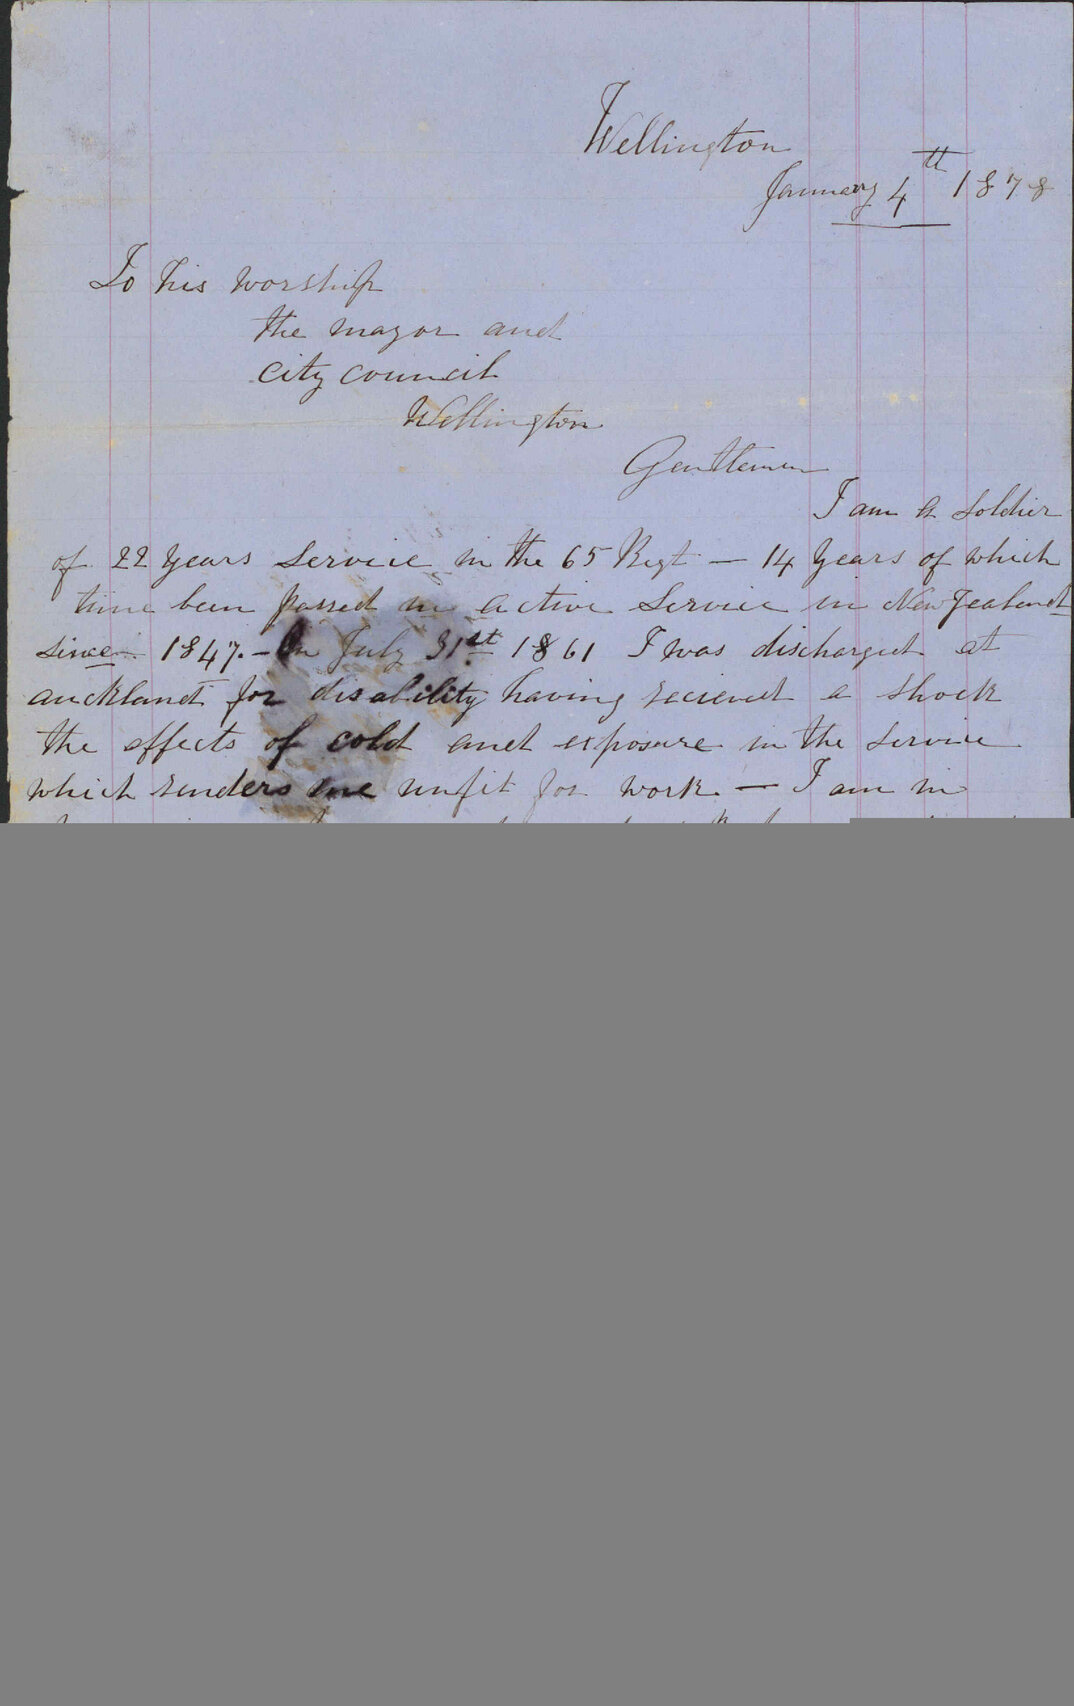 Wellington
January 4th 1878
To his worship
the mayor and
city council
Wellington
Gentlemen
I am a soldier
of 22 years service in the 65 Regt — 14 years of which
time been passed in active service in New Zealand
since 1847. – On July 31st 1861 I was discharged at
auckland for disability having recieved a shock
the effects of cold and exposure in the service
which renders me unfit for work. — I am in